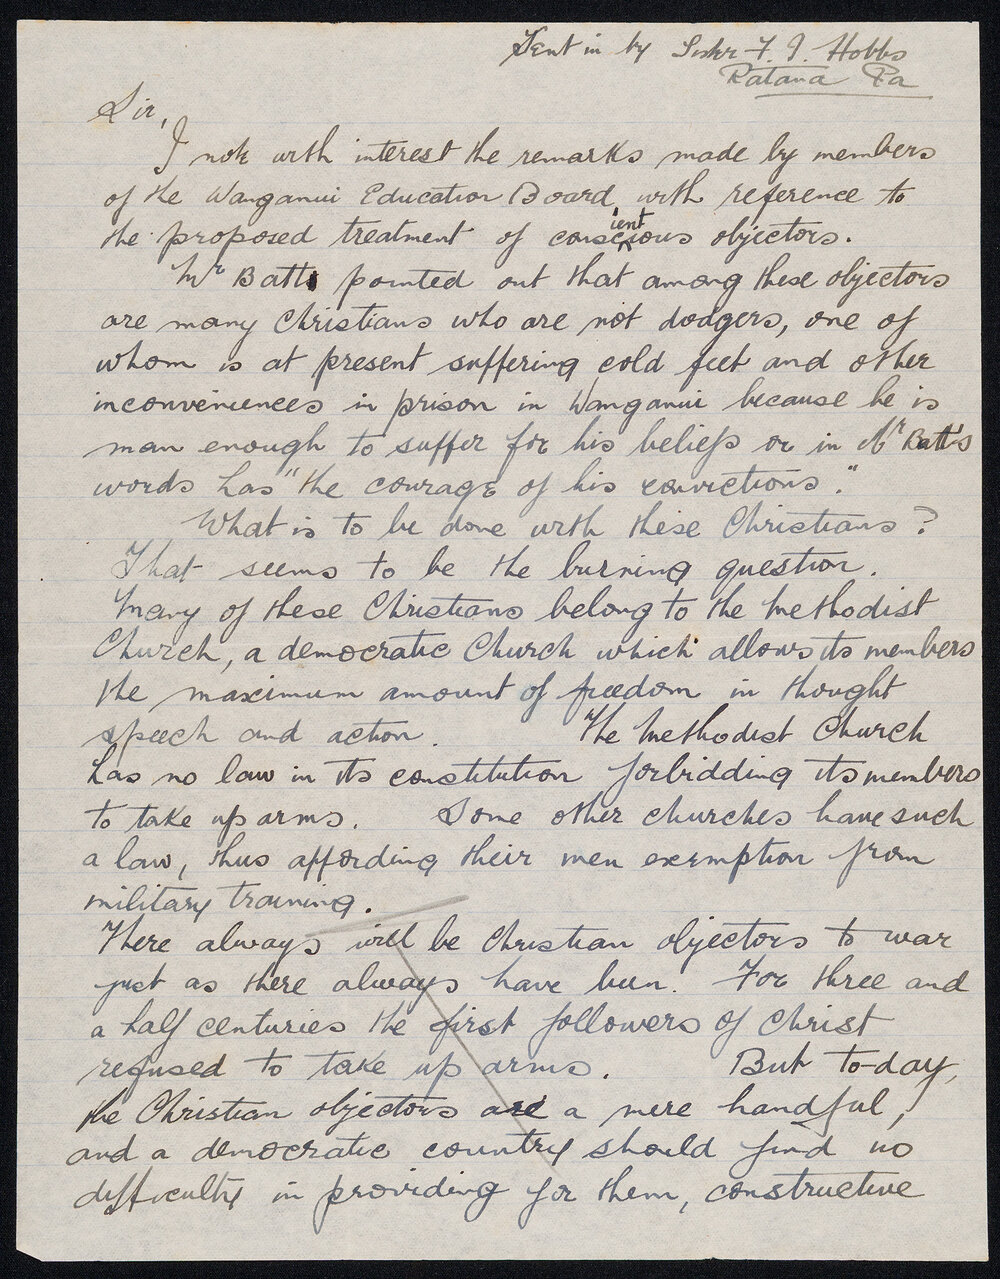 Sent in by Sister F. I. Hobbs
Ratana Pa
Sir,
I note with interest the remarks made by members
of the Wanganui Education Board with reference to
the proposed treatment of conscientious objectors.
Mr Batts pointed out that among these objectors
are many Christians who are not dodgers, one of
whom is at present suffering cold feet and other
inconveniences in prison in Wanganui because he is
man enough to suffer for his beliefs or in Mr Batt's
words has "the courage of his convictions."
What is to be done with these Christians?
That seems to be the burning question.
Many of these Christians belong to the Methodist
Church, a democratic Church which allows its members
the maximum amount of freedom in thought
speech and action. The Methodist Church
has no law in its constitution forbidding its members
to take up arms. Some other churches have such
a law, thus affording their men exemption from
military training.
There always will be Christian objectors to war
just as there always have been. For three and
a half centuries the first followers of Christ
refused to take up arms. But to-day,
the Christian objectors are a mere handful,
and a democratic country should find no
difficulty in providing for them, constructive